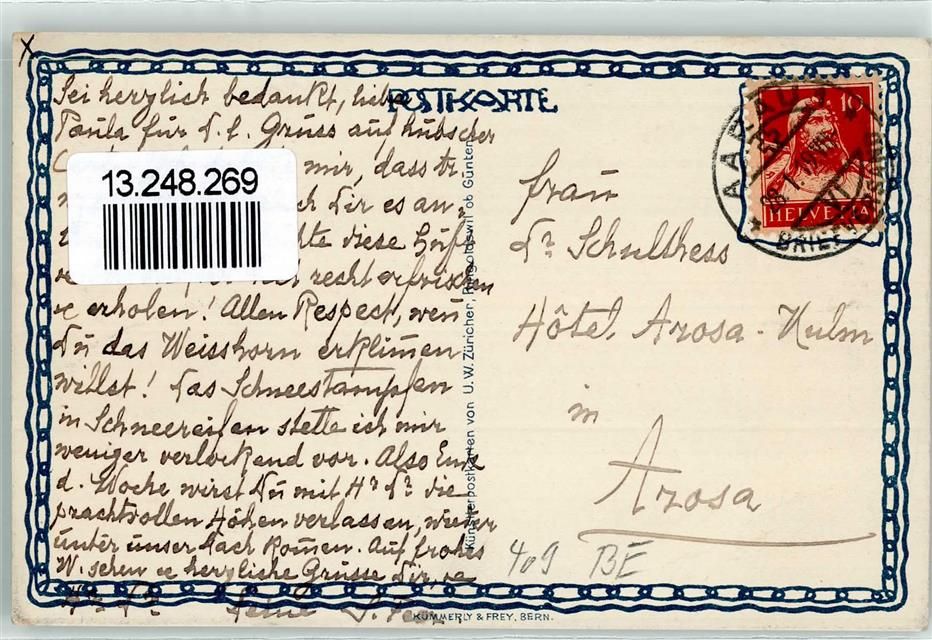 POSTKARTE
Sei herzlich bedankt, liebe
Paula für d. l. Gruss auf hübscher
mir, dass
13.248.269
ch Dir es an
diese
recht erfrischen
& erholen! Allen Respect, wen
Du das Weisshorn erklimen
willst! Das Schneestampfen
in Schneereifen stelle ich mir
weniger verlockend vor. Also Ende
d. Woche wirst Du mit Hr Dr die
prachtvollen Höhen verlassen, wieder
unter unser Dach komen. Auf frohes
W. sehen & herzliche Grüsse Dir, &
Hr Dr Deine
Künstlerpostkarten von U. W. Züricher, Ringoldswil ob Gunten
KÜMMERLY & FREY, BERN.
AARAU 1
BRIEFVERSAND
10
HELVETIA
Frau
Dr Schulthess
Hôtel Arosa-Kulm
in
Arosa
409 BE